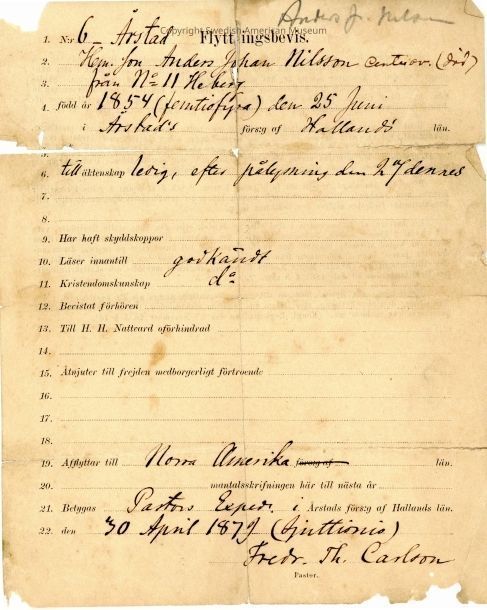 Copyright Swedish American Museum
Anders J. Nilson
1. N:r 6 – Årstad Flyttningsbevis.
2. Hem. son Anders Johan Nilsson
3. från No 11 Heberg
4. född år 1854 (femtiofyra) den 25 Juni
i Årstad's förs:g af Hallands län.
5.
6. till äktenskap ledig, efter pålysning den 27 dennes
7.
8.
9. Har haft skyddskoppor
10. Läser innantill godkändt
11. Kristendomskunskap do
12. Bevistat förhören
13. Till H. H. Nattvard oförhindrad
14.
15. Åtnjuter till frejden medborgerligt förtroende
16.
17.
18.
19. Afflyttar till Norra Amerika förs:g af län.
20. mantalsskrifningen här till nästa år
21. Betygas Pastors Exped. i Årstads förs:g af Hallands län.
22. den 30 April 1879 (sjuttionio)
Fredr. Th. Carlson
Pastor.